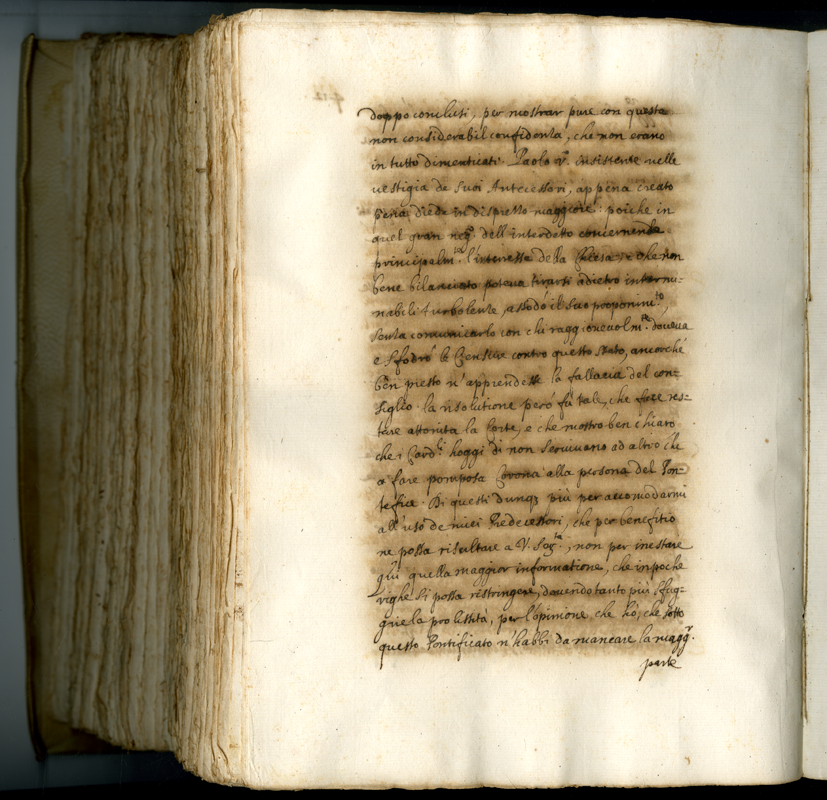 doppo conclusi, per mostrar pure con questa
non considerabil confidenza, che non erano
in tutto dimenticati. Paolo V. insistente nelle
vestigia de suoi Antecessori, appena creato
Papa, diede in dispretto maggiore: poiche in
quel gran neg.o dell'interdetto concernente
principalm.te l'interesse della Chiesa, e che non
bene bilanciato poteva tirarsi adietro intermi-
nabili turbolenze, assodò il suo proponim.to,
senza comunicarlo con chi raggionevolm.te doveva
e sfodrò le Censure contro questo Stato, ancorché
ben presto n'apprendesse la fallacia del con=
siglio. la risolutione però fù tale, che fece res=
tare attonita la Corte, e che mostrò ben chiaro
che i Card.li hoggi dì non servivano ad altro che
a fare pomposa Corona alla persona del Pon=
tefice. Di questi dunq; più per accomodarmi
all'uso de miei Predecessori, che per benefitio
ne possa risultare a V. Ser.tà, non per inestare
quì quella maggior informatione, che in poche
righe si possa restringere, dovendo tanto più sfug=
gire la prolissità, per l'opinione, che hò, che sotto
questo Pontificato n'habbi da mancare la magg.r
parte